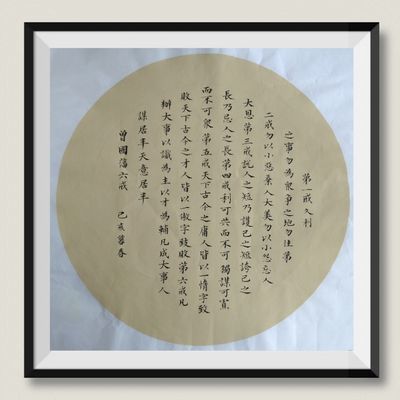 第一戒久利
之事勿為眾爭之地勿往第
二戒勿以小惡棄人大美勿以小怨忘人
大恩第三戒說人之短乃護己之短誇己之
長乃忌人之長第四戒利可共而不可獨謀可寡
而不可眾第五戒天下古今之庸人皆以一惰字致
敗天下古今之才人皆以一傲字致敗第六戒凡
辦大事以識為主以才為輔凡成大事人
謀居半天意居半
曾國藩六戒 己亥暮春